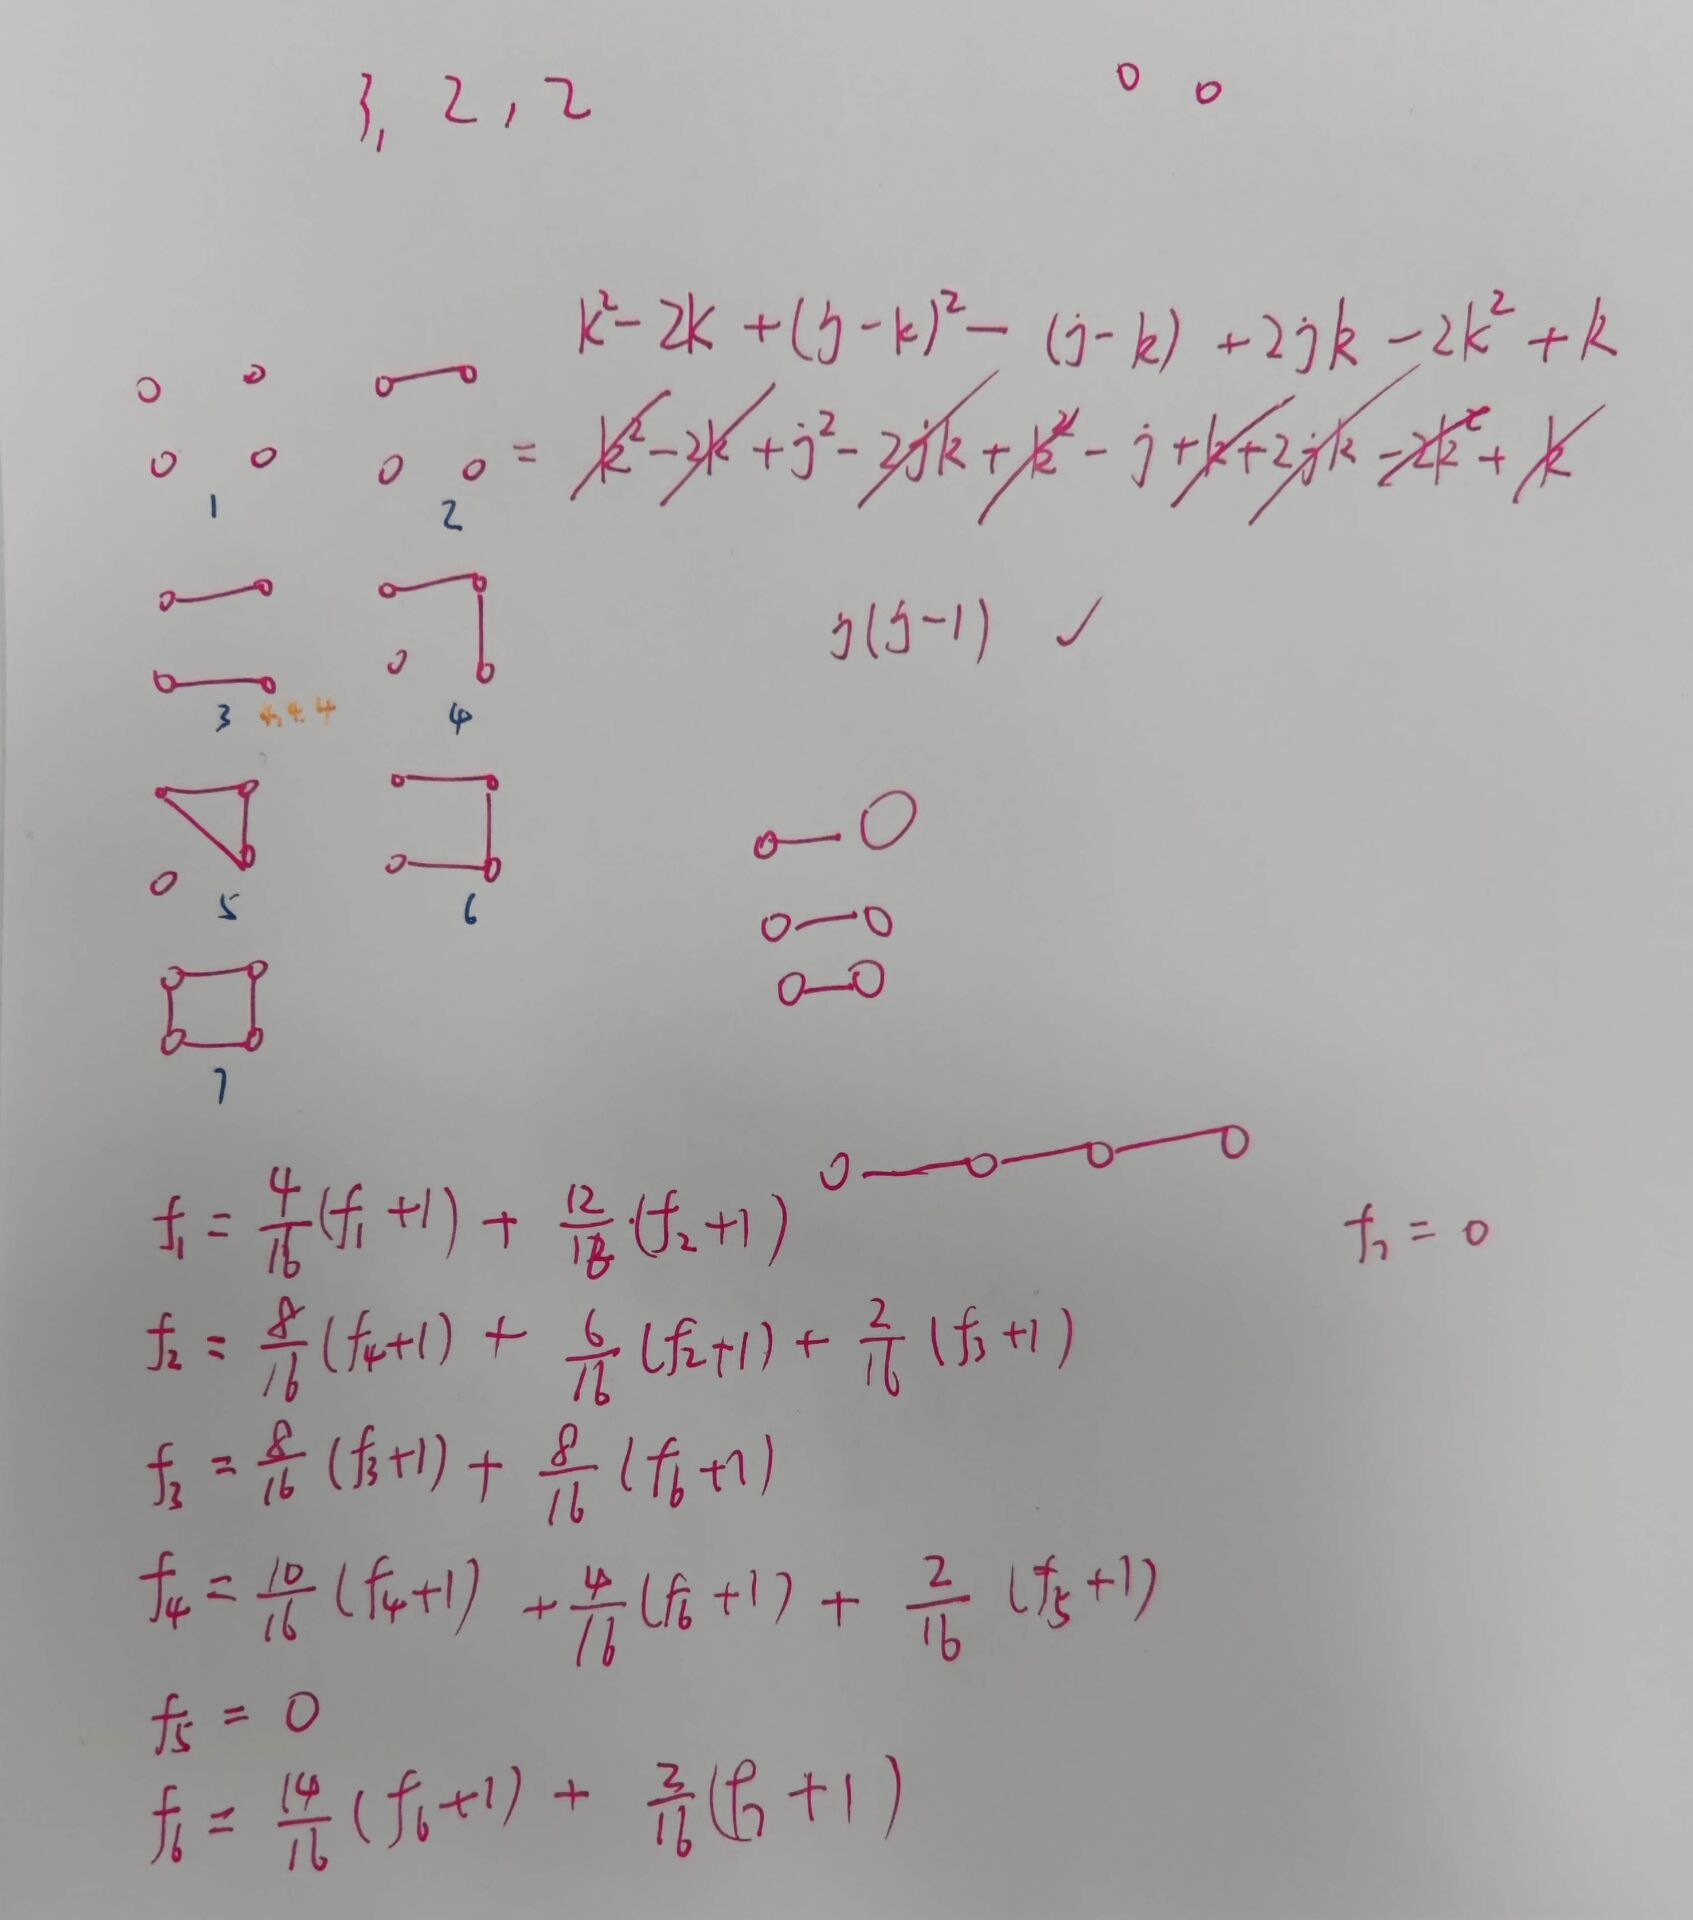 3, 2, 2
k² - 2k + (j - k)² - (j - k) + 2jk - 2k² + k
= k² - 2k + j² - 2jk + k² - j + k + 2jk - 2k² + k
1 2
j(j-1) ✓
3 4,4,4 4
5 6
7
f₁ = 4/16 (f₁ + 1) + 12/16 · (f₂ + 1)
f₇ = 0
f₂ = 8/16 (f₄ + 1) + 6/16 (f₂ + 1) + 2/16 (f₃ + 1)
f₃ = 8/16 (f₃ + 1) + 8/16 (f₆ + 1)
f₄ = 10/16 (f₄ + 1) + 4/16 (f₆ + 1) + 2/16 (f₅ + 1)
f₅ = 0
f₆ = 14/16 (f₆ + 1) + 2/16 (f₇ + 1)